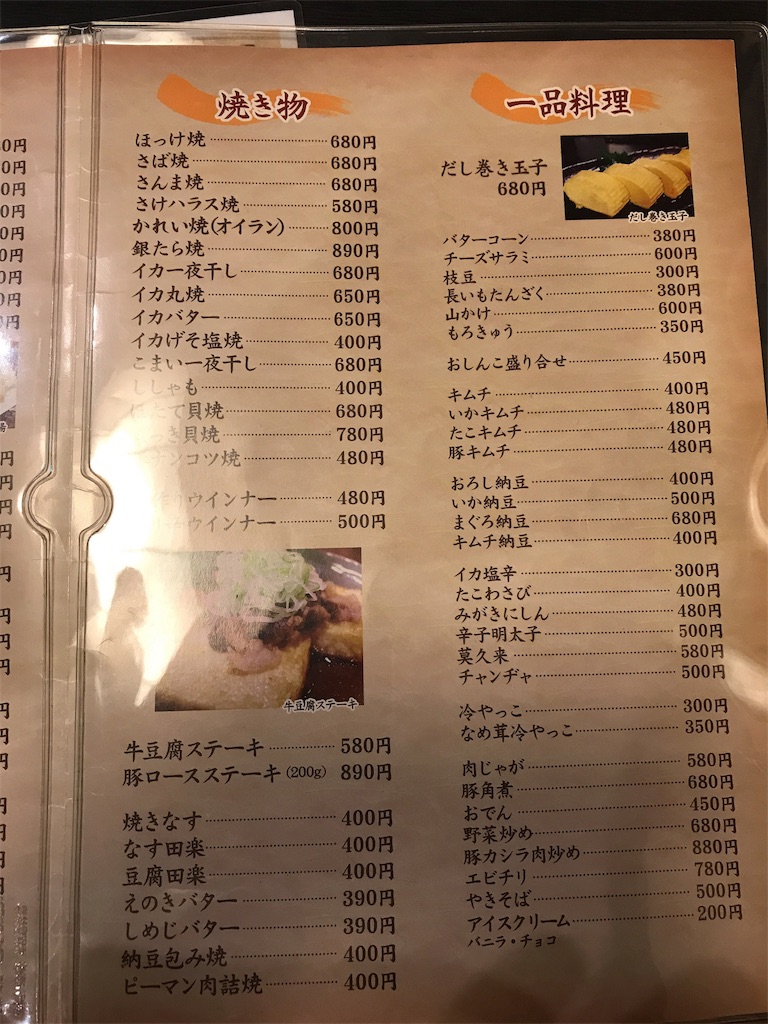 焼き物
ほっけ焼 680円
さば焼 680円
さんま焼 680円
さけハラス焼 580円
かれい焼(オイラン) 800円
銀たら焼 890円
イカ一夜干し 680円
イカ丸焼 650円
イカバター 650円
イカげそ塩焼 400円
こまい一夜干し 680円
ししゃも 400円
ほたて貝焼 680円
っき貝焼 780円
ナンコツ焼 480円
ウインナー 480円
ウインナー 500円
牛豆腐ステーキ
牛豆腐ステーキ 580円
豚ロースステーキ(200g) 890円
焼きなす 400円
なす田楽 400円
豆腐田楽 400円
えのきバター 390円
しめじバター 390円
納豆包み焼 400円
ピーマン肉詰焼 400円
一品料理
だし巻き玉子
680円
だし巻き玉子
バターコーン 380円
チーズサラミ 600円
枝豆 300円
長いもたんざく 380円
山かけ 600円
もろきゅう 350円
おしんこ盛り合せ 450円
キムチ 400円
いかキムチ 480円
たこキムチ 480円
豚キムチ 480円
おろし納豆 400円
いか納豆 500円
まぐろ納豆 680円
キムチ納豆 400円
イカ塩辛 300円
たこわさび 400円
みがきにしん 480円
辛子明太子 500円
莫久来 580円
チャンヂャ 500円
冷やっこ 300円
なめ茸冷やっこ 350円
肉じゃが 580円
豚角煮 680円
おでん 450円
野菜炒め 680円
豚カシラ肉炒め 880円
エビチリ 780円
やきそば 500円
アイスクリーム 200円
バニラ・チョコ